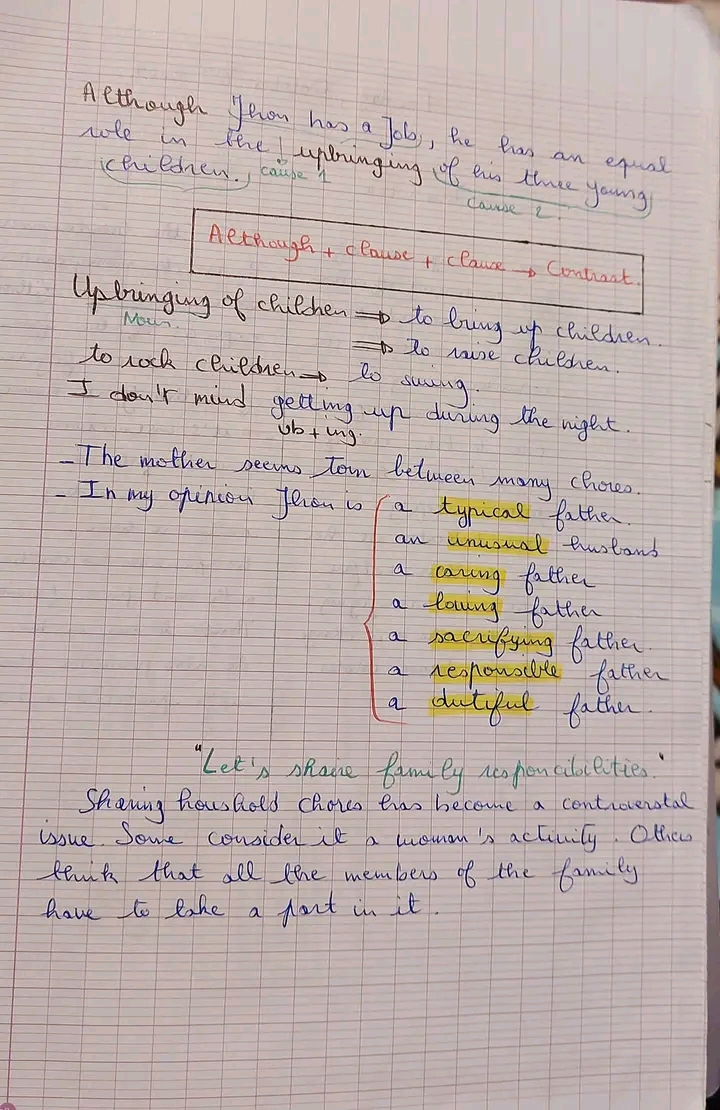 Although Jhon has a Job, he has an equal
role in the upbringing of his three young
children. cause 1
clause 2.
Although + clause + clause → Contrast.
Upbringing of children ⇒ to bring up children.
Noun. ⇒ to raise children.
to rock children → to swing.
I don't mind getting up during the night.
vb + ing.
- The mother seems torn between many chores.
- In my opinion Jhon is
a typical father.
an unusual husband
a caring father
a loving father
a sacrifying father.
a responsible father
a dutiful father.
"Let's share family responcibilities."
Sharing houshold chores has become a controverstal
issue. Some consider it a woman's activity. Others
think that all the members of the family
have to take a part in it.